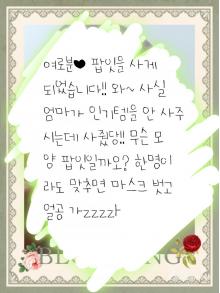 여러분♥ 팝잇을 사게
되었습니다!! 와~ 사실
엄마가 인기템을 안 사주
시는데 사줬당!! 무슨 모
양 팝잇일까요? 한명이
라도 맞추면 마스크 벗고
얼공 가zzzz라